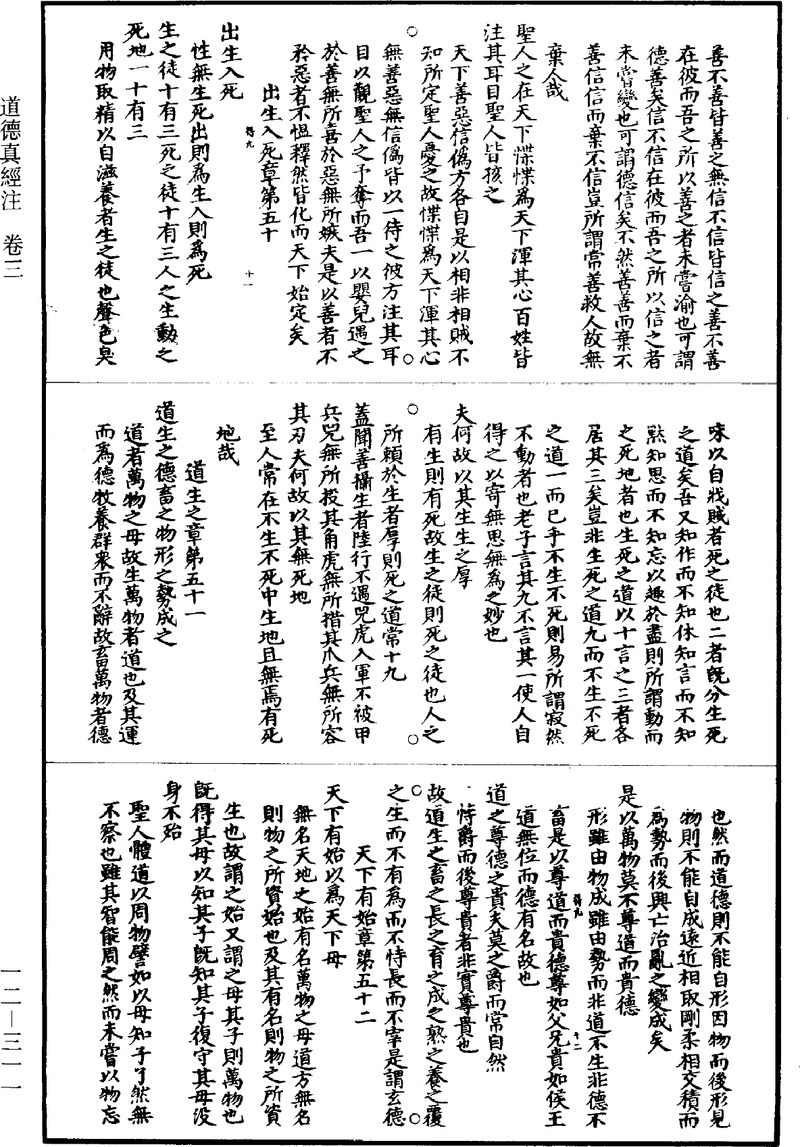 道德真經注　卷三
善不善皆善之無信不信皆信之善不善
在彼而吾之所以善之者未嘗渝也可謂
德善矣信不信在彼而吾之所以信之者
未嘗變也可謂德信矣不然善善而棄不
善信信而棄不信豈所謂常善救人故無
棄人哉
聖人之在天下惵惵為天下渾其心百姓皆
注其耳目聖人皆孩之
天下善惡信偽方各自是以相非相賊不
知所定聖人憂之故惵惵為天下渾其心
無善惡無信偽皆以一待之彼方注其耳
目以觀聖人之予奪而吾一以嬰兒遇之
於善無所喜於惡無所嫉夫是以善者不
矜惡者不慍釋然皆化而天下始定矣
出生入死章第五十
得九　十一
出生入死
性無生死出則為生入則為死
生之徒十有三死之徒十有三人之生動之
死地一十有三
用物取精以自滋養者生之徒也聲色臭
味以自戕賊者死之徒也二者既分生死
之道矣吾又知作而不知休知言而不知
默知思而不知忘以趣於盡則所謂動而
之死地者也生死之道以十言之三者各
居其三矣豈非生死之道九而不生不死
之道一而已乎不生不死則易所謂寂然
不動者也老子言其九不言其一使人自
得之以寄無思無為之妙也
夫何故以其生生之厚
有生則有死故生之徒則死之徒也人之
所賴於生者厚則死之道常十九
蓋聞善攝生者陸行不遇兕虎入軍不被甲
兵兕無所投其角虎無所措其爪兵無所容
其刃夫何故以其無死地
至人常在不生不死中生地且無焉有死
地哉
道生之章第五十一
道生之德畜之物形之勢成之
道者萬物之母故生萬物者道也及其運
而為德牧養群衆而不辭故畜萬物者德
也然而道德則不能自形因物而後形見
物則不能自成遠近相取剛柔相交積而
為勢而後興亡治亂之變成矣
是以萬物莫不尊道而貴德
形雖由物成雖由勢而非道不生非德不
得九　十二
畜是以尊道而貴德尊如父兄貴如侯王
道無位而德有名故也
道之尊德之貴夫莫之爵而常自然
恃爵而後尊貴者非實尊貴也
故道生之畜之長之育之成之熟之養之覆
之生而不有為而不恃長而不宰是謂玄德
天下有始章第五十二
天下有始以為天下母
無名天地之始有名萬物之母道方無名
則物之所資始也及其有名則物之所資
生也故謂之始又謂之母其子則萬物也
既得其母以知其子既知其子復守其母没
身不殆
聖人體道以周物譬如以母知子了然無
不察也雖其智能周之然而未嘗以物忘
一二—三一一